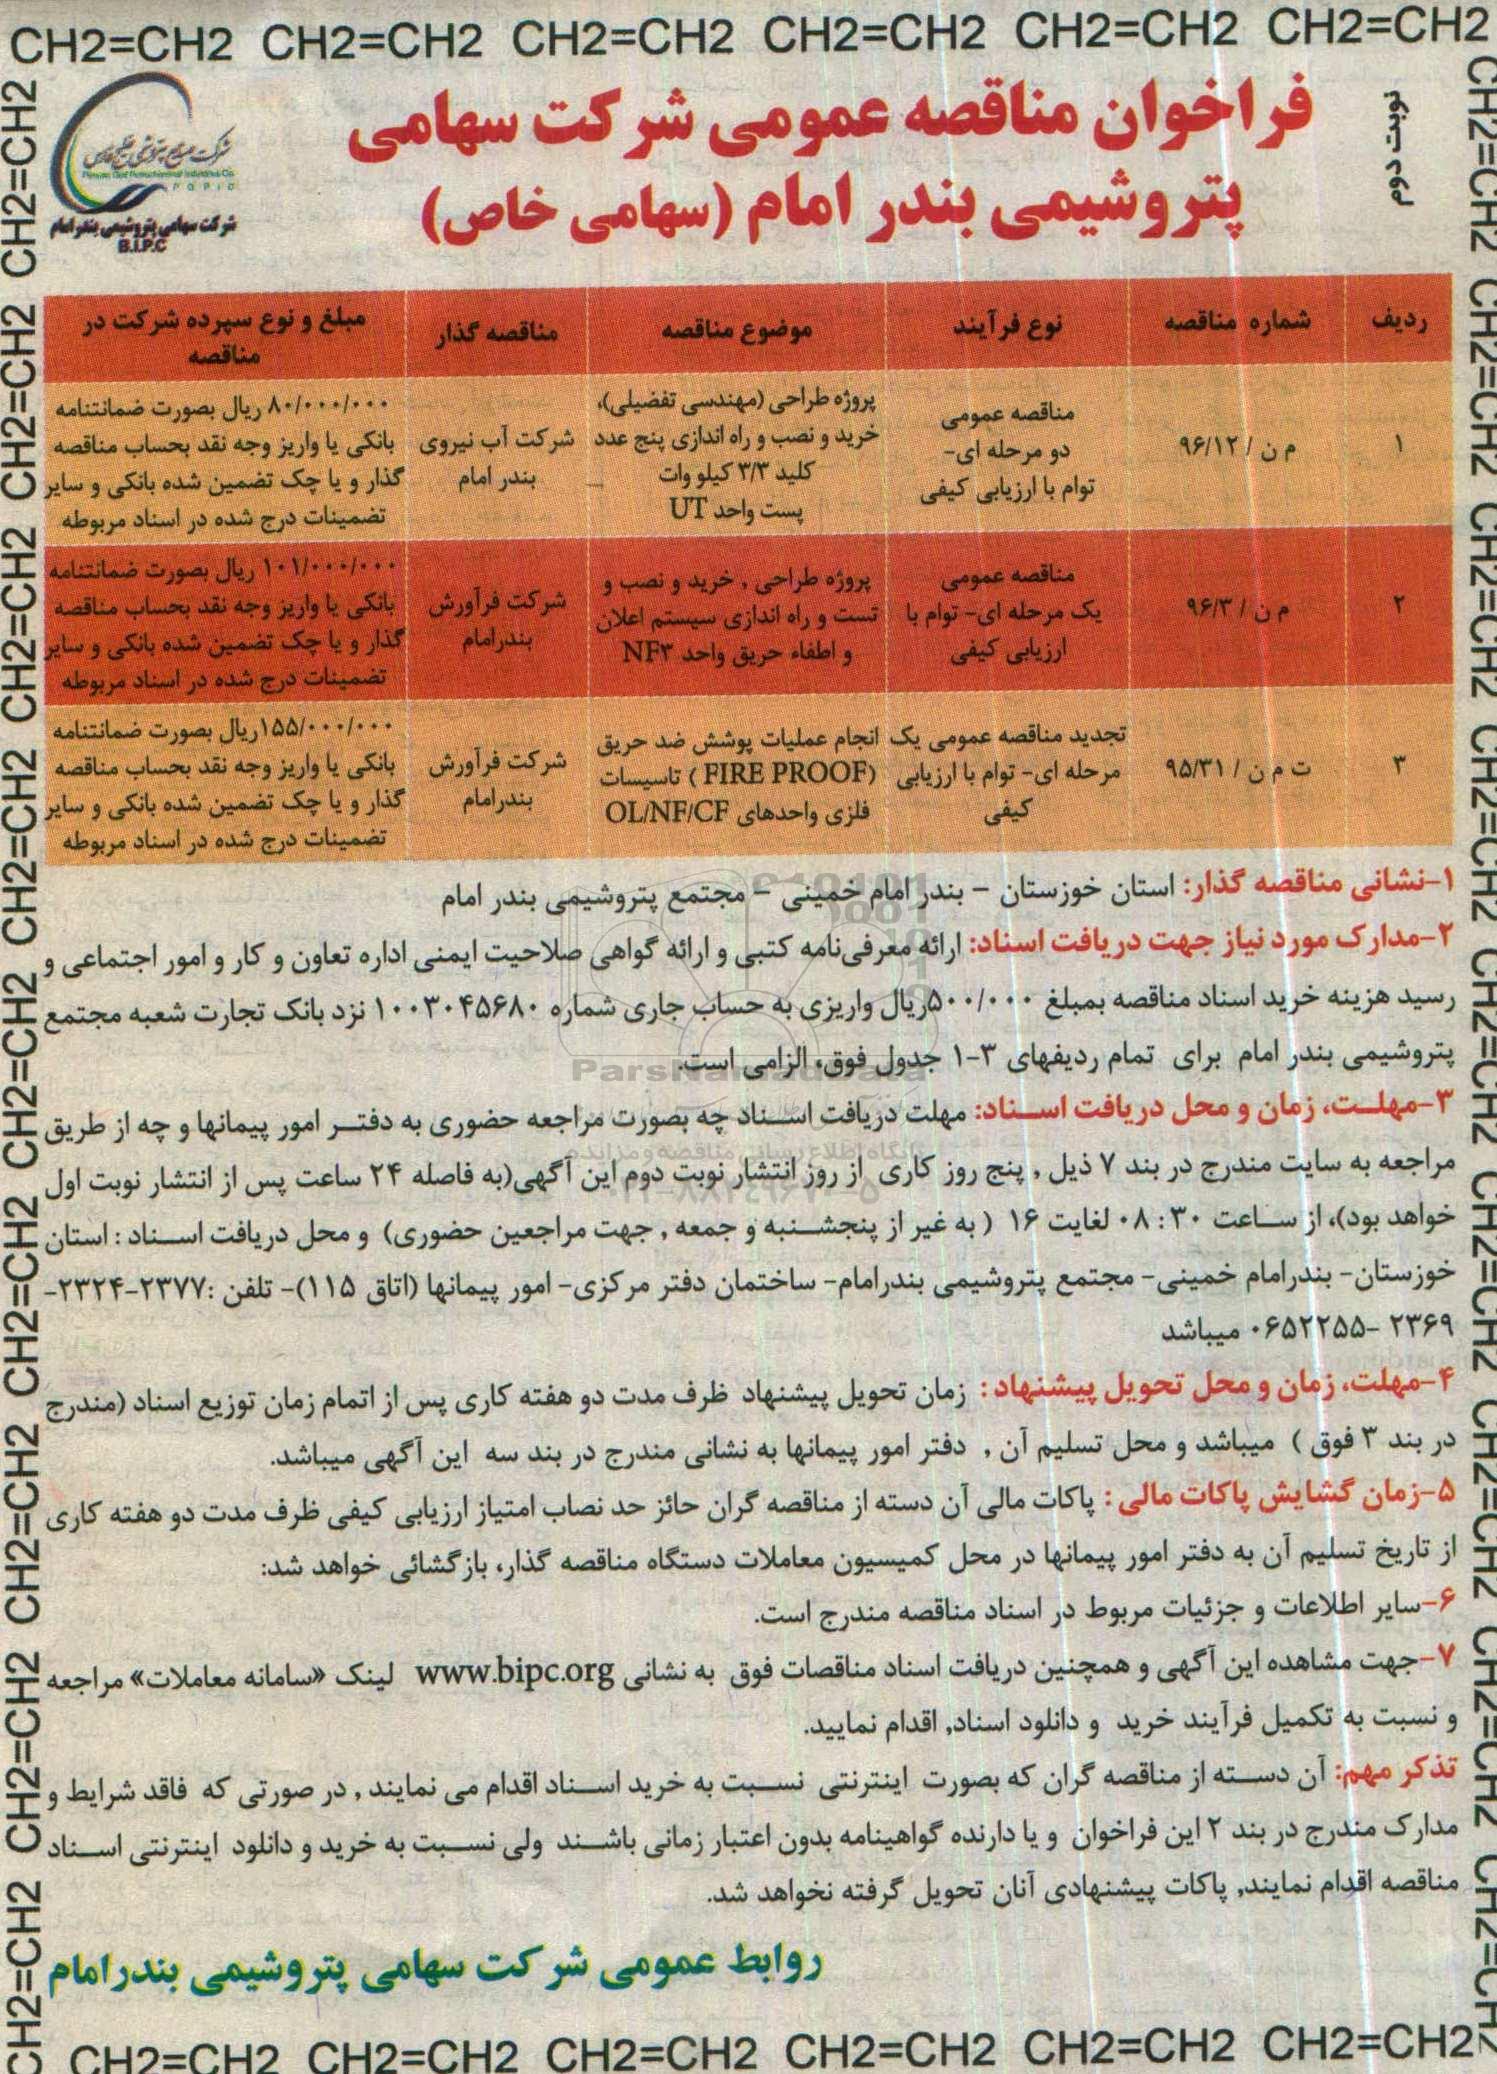 CH2=CH2 CH2=CH2 CH2=CH2 CH2=CH2 CH2=CH2 CH2=CH2
نوبت دوم
فراخوان مناقصه عمومی شرکت سهامی
پتروشیمی بندر امام (سهامی خاص)
شرکت صنایع پتروشیمی خلیج فارس
Persian Gulf Petrochemical Industries Co.
P G P I C
شرکت سهامی پتروشیمی بندر امام
B.I.P.C
ردیف	شماره مناقصه	نوع فرآیند	موضوع مناقصه	مناقصه گذار	مبلغ و نوع سپرده شرکت در مناقصه
۱	م ن / ۹۶/۱۲	مناقصه عمومی دو مرحله ای- توام با ارزیابی کیفی	پروژه طراحی (مهندسی تفضیلی)، خرید و نصب و راه اندازی پنج عدد کلید ۳/۳ کیلو وات پست واحد UT	شرکت آب نیروی بندر امام	۸۰/۰۰۰/۰۰۰ ریال بصورت ضمانتنامه بانکی یا واریز وجه نقد بحساب مناقصه گذار و یا چک تضمین شده بانکی و سایر تضمینات درج شده در اسناد مربوطه
۲	م ن / ۹۶/۳	مناقصه عمومی یک مرحله ای- توام با ارزیابی کیفی	پروژه طراحی , خرید و نصب و تست و راه اندازی سیستم اعلان و اطفاء حریق واحد NF۳	شرکت فرآورش بندرامام	۱۰۱/۰۰۰/۰۰۰ ریال بصورت ضمانتنامه بانکی یا واریز وجه نقد بحساب مناقصه گذار و یا چک تضمین شده بانکی و سایر تضمینات درج شده در اسناد مربوطه
۳	ت م ن / ۹۵/۳۱	تجدید مناقصه عمومی یک مرحله ای- توام با ارزیابی کیفی	انجام عملیات پوشش ضد حریق (FIRE PROOF) تاسیسات فلزی واحدهای OL/NF/CF	شرکت فرآورش بندرامام	۱۵۵/۰۰۰/۰۰۰ریال بصورت ضمانتنامه بانکی یا واریز وجه نقد بحساب مناقصه گذار و یا چک تضمین شده بانکی و سایر تضمینات درج شده در اسناد مربوطه
۱-نشانی مناقصه گذار: استان خوزستان – بندر امام خمینی – مجتمع پتروشیمی بندر امام
۲-مدارک مورد نیاز جهت دریافت اسناد: ارائه معرفی‌نامه کتبی و ارائه گواهی صلاحیت ایمنی اداره تعاون و کار و امور اجتماعی و
رسید هزینه خرید اسناد مناقصه بمبلغ ۵۰۰/۰۰۰ریال واریزی به حساب جاری شماره ۱۰۰۳۰۴۵۶۸۰ نزد بانک تجارت شعبه مجتمع
پتروشیمی بندر امام برای تمام ردیفهای ۳-۱ جدول فوق، الزامی است.
ParsNamadData
۳-مهلت، زمان و محل دریافت اسناد: مهلت دریافت اسناد چه بصورت مراجعه حضوری به دفتر امور پیمانها و چه از طریق
پایگاه اطلاع رسانی مناقصه و مزایده
مراجعه به سایت مندرج در بند ۷ ذیل , پنج روز کاری از روز انتشار نوبت دوم این آگهی(به فاصله ۲۴ ساعت پس از انتشار نوبت اول
خواهد بود)، از ساعت ۳۰ : ۰۸ لغایت ۱۶ ( به غیر از پنجشنبه و جمعه , جهت مراجعین حضوری) و محل دریافت اسناد : استان
خوزستان- بندرامام خمینی- مجتمع پتروشیمی بندرامام- ساختمان دفتر مرکزی- امور پیمانها (اتاق ۱۱۵)- تلفن :۲۳۷۷-۲۳۲۴-
۲۳۶۹ -۰۶۵۲۲۵۵ میباشد
۴-مهلت، زمان و محل تحویل پیشنهاد : زمان تحویل پیشنهاد ظرف مدت دو هفته کاری پس از اتمام زمان توزیع اسناد (مندرج
در بند ۳ فوق ) میباشد و محل تسلیم آن , دفتر امور پیمانها به نشانی مندرج در بند سه این آگهی میباشد.
۵-زمان گشایش پاکات مالی : پاکات مالی آن دسته از مناقصه گران حائز حد نصاب امتیاز ارزیابی کیفی ظرف مدت دو هفته کاری
از تاریخ تسلیم آن به دفتر امور پیمانها در محل کمیسیون معاملات دستگاه مناقصه گذار، بازگشائی خواهد شد:
۶-سایر اطلاعات و جزئیات مربوط در اسناد مناقصه مندرج است.
۷-جهت مشاهده این آگهی و همچنین دریافت اسناد مناقصات فوق به نشانی www.bipc.org لینک «سامانه معاملات» مراجعه
و نسبت به تکمیل فرآیند خرید و دانلود اسناد, اقدام نمایید.
تذکر مهم: آن دسته از مناقصه گران که بصورت اینترنتی نسبت به خرید اسناد اقدام می نمایند , در صورتی که فاقد شرایط و
مدارک مندرج در بند ۲ این فراخوان و یا دارنده گواهینامه بدون اعتبار زمانی باشند ولی نسبت به خرید و دانلود اینترنتی اسناد
مناقصه اقدام نمایند, پاکات پیشنهادی آنان تحویل گرفته نخواهد شد.
روابط عمومی شرکت سهامی پتروشیمی بندرامام
CH2=CH2 CH2=CH2 CH2=CH2 CH2=CH2 CH2=CH2 CH2=CH2